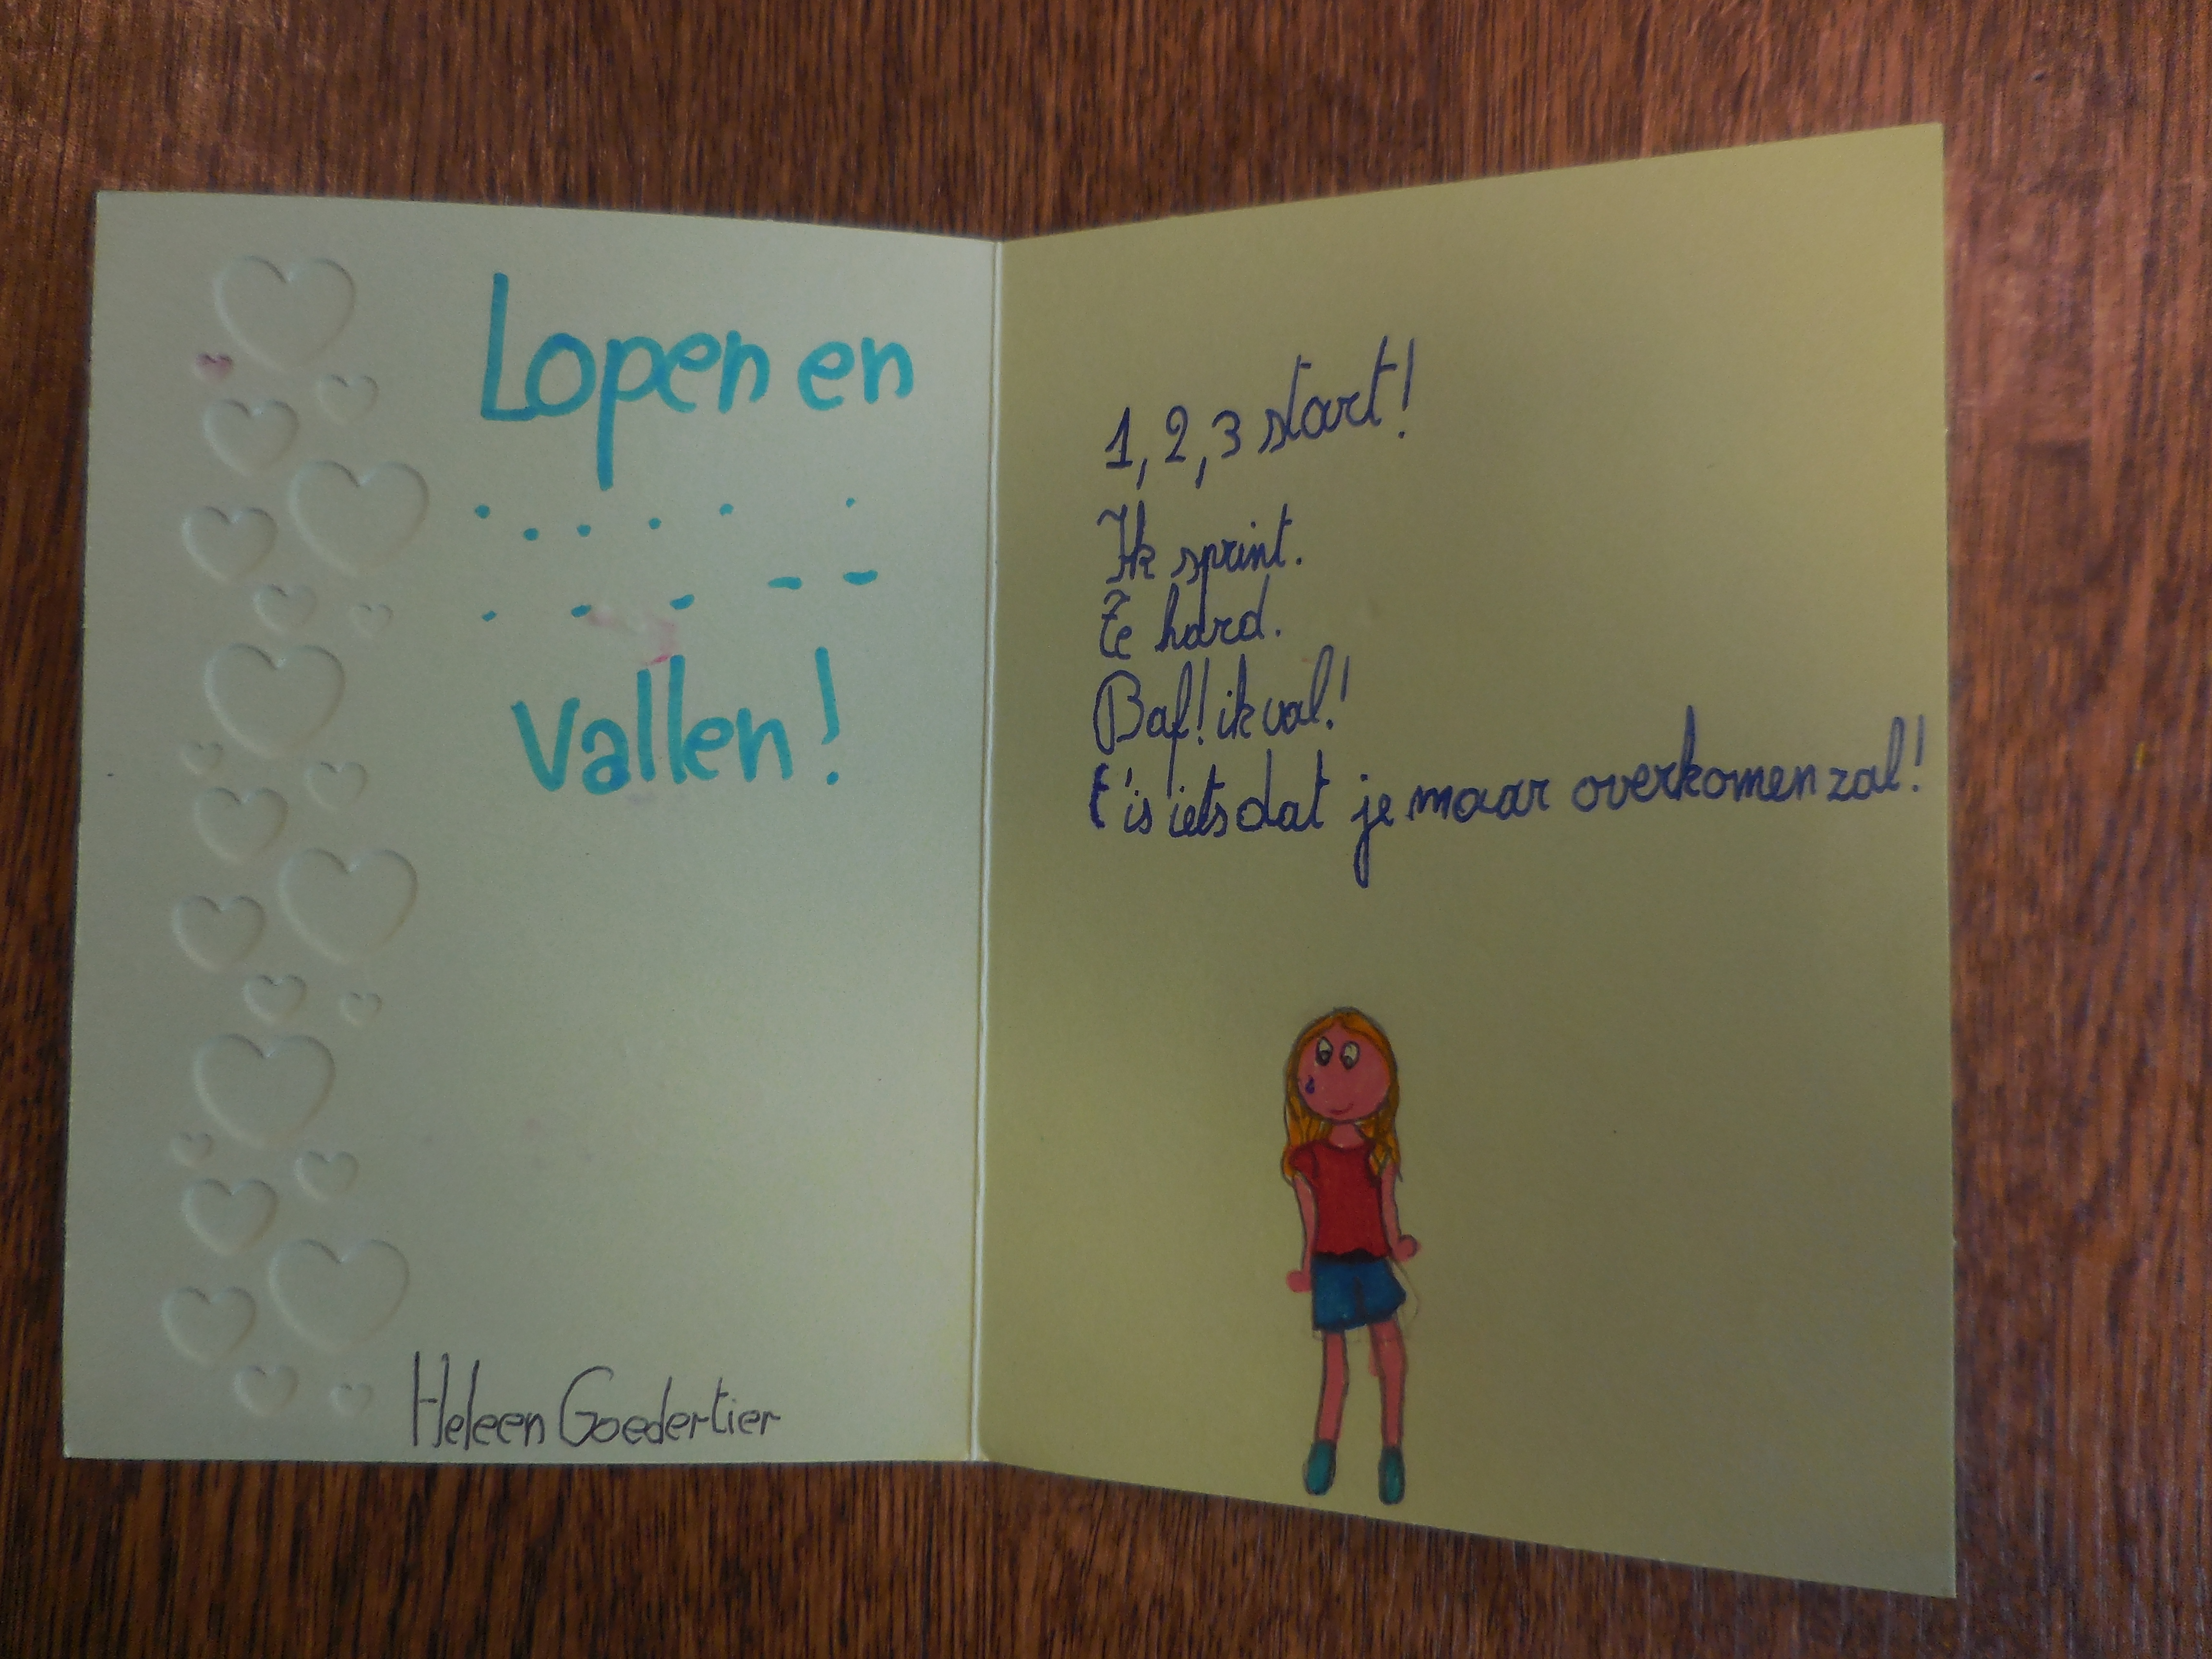 Lopen en
vallen!
Heleen Goedertier
1, 2, 3 start!
Ik sprint.
Te hard.
Baf! ik val!
t'is iets dat je maar overkomen zal!